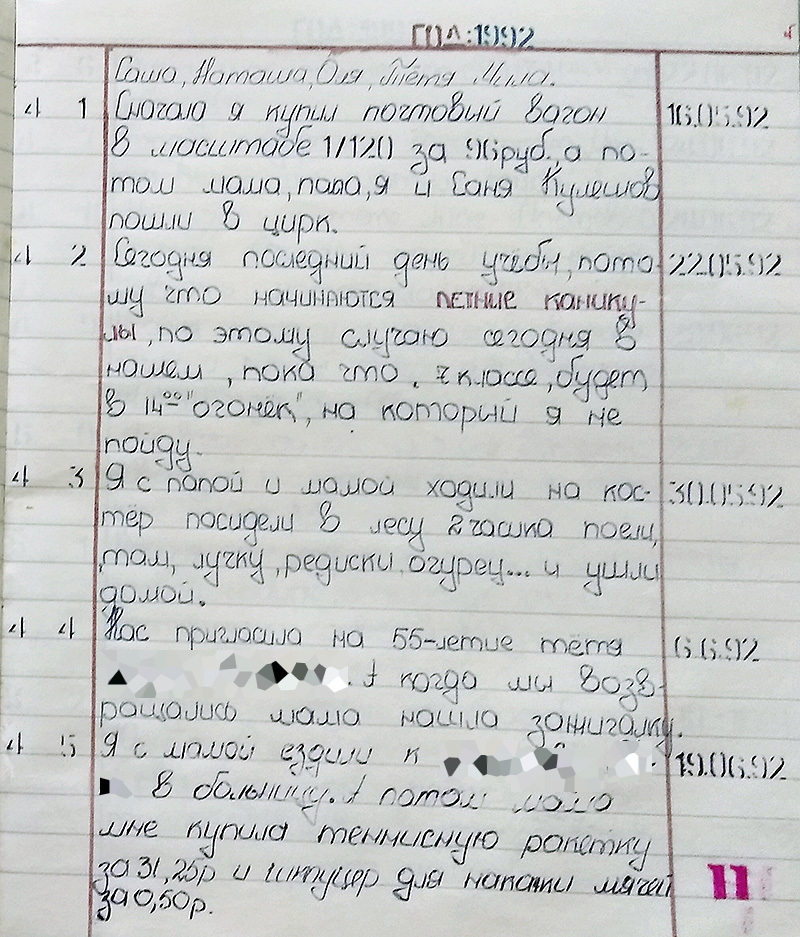 ГОД:1992
Саша, Наташа, Оля, Тётя Мила.
4 1 Сначала я купил почтовый вагон 16.05.92
в масштабе 1/120 за 96руб., а по-
том мама, папа, я и Саня Кулешов
пошли в цирк.
4 2 Сегодня последний день учёбы, пото- 22.05.92
му что начинаются летние канику-
лы, по этому случаю сегодня в
нашем, пока что, 7 классе, будет
в 14⁰⁰ "огонёк", на который я не
пойду.
4 3 Я с папой и мамой ходили на кос- 30.05.92
тёр посидели в лесу 2 часика поели,
там, лучку, редиски, огурец... и ушли
домой.
4 4 Нас пригласила на 55-летие тётя 6.6.92
. А когда мы возв-
ращались мама нашла зажигалку.
4 5 Я с мамой ездили к 19.06.92
в больницу. А потом мама
мне купила теннисную ракетку
за 31,25р и штуцер для накачки мячей
за 0,50р.
11